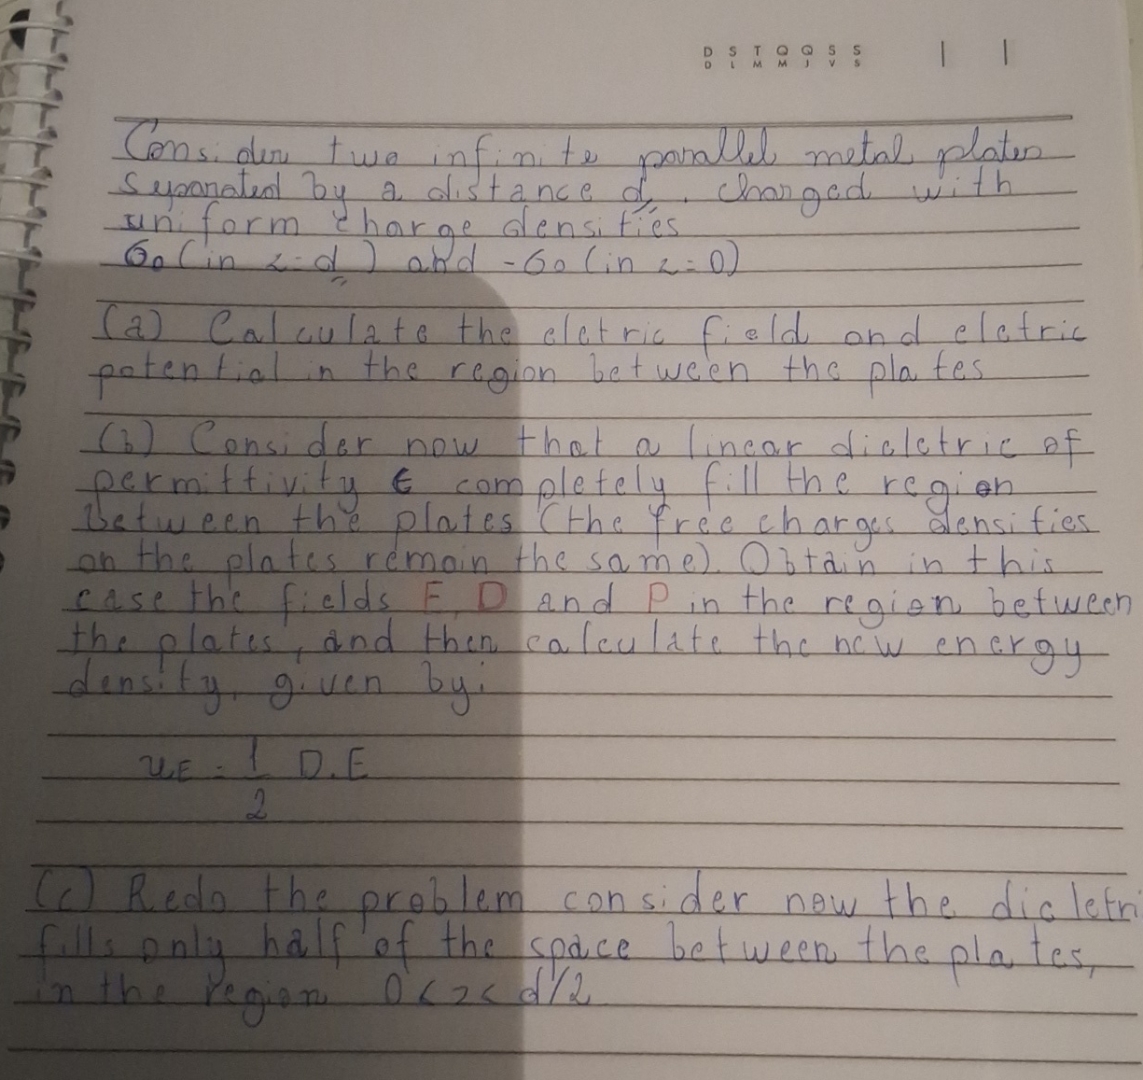 D S T Q Q S S
D L M M J V S
Consider two infinite parallel metal plates
separated by a distance d, charged with
uniform charge densities
σo (in z=d) and -σo (in z=0)
(a) Calculate the eletric field and eletric
potential in the region between the plates
(b) Consider now that a linear dieletric of
permittivity ϵ completely fill the region
between the plates (the free charges densities
on the plates remain the same). Obtain in this
case the fields E, D and P in the region between
the plates, and then calculate the new energy
density, given by:
uE = 1/2 D.E
(c) Redo the problem consider now the dieletri
fills only half of the space between the plates,
in the region 0<z<d/2